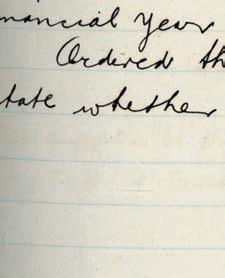 nancial year
Ordered th
tate whether